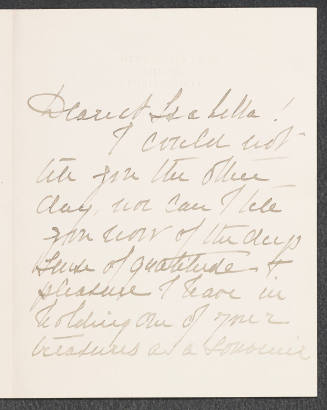 Dearest Isabella!
I could not
tell you the other
day, nor can I tell
you now of the deep
sense of gratitude &
pleasure I have in
holding one of your
treasures as a souvenir